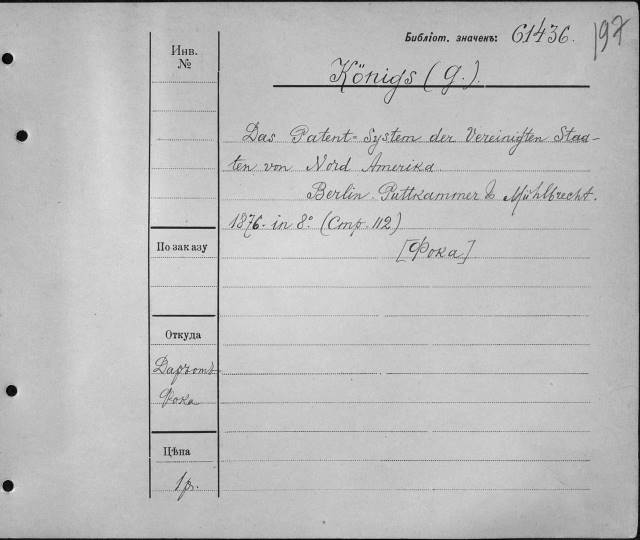 Библіот. значенъ: 61436. 197
Инв.
№
Königs (G.).
Das Patent-System der Vereinigten Staa-
ten von Nord Amerika.
Berlin. Puttkammer & Mühlbrecht.
1876. in 8° (Стр. 112)
По заказу
[Фока]
Откуда
Даръ отъ
Фока
Цѣна
1 р.